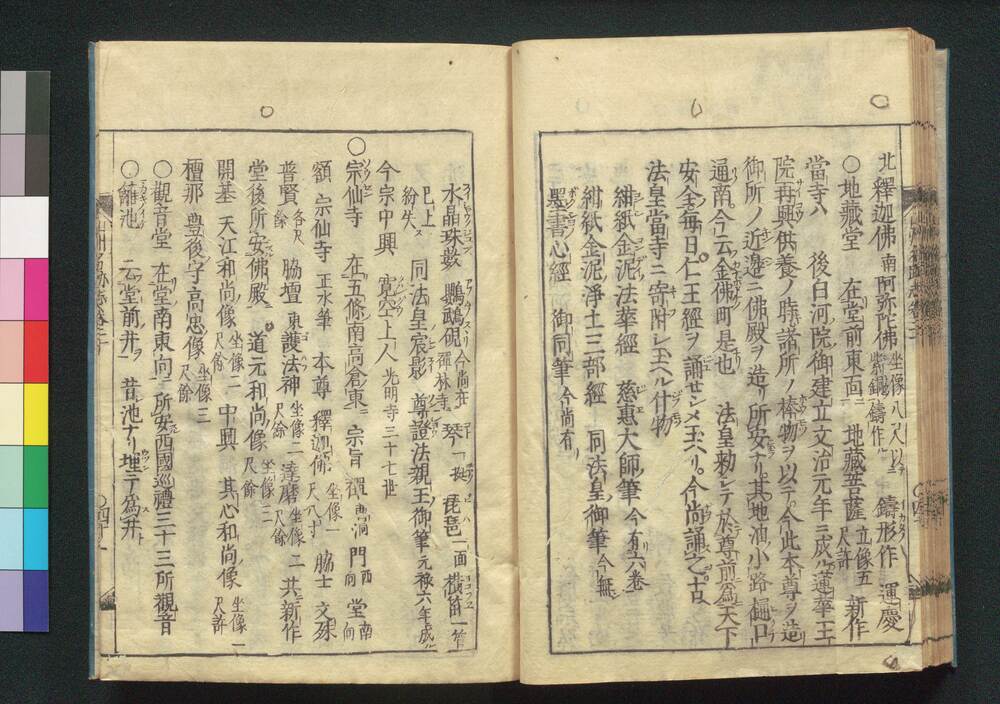 北釋迦佛 南阿弥陀佛 坐像八尺以 紫銅鑄作 鑄形作 運慶
○地藏堂 在堂前東面 地藏菩薩 立像五尺許 新作
當寺ハ 後白河院御建立文治元年三成 蓮華王
院再興供養ノ時諸所ノ捧物ヲ以テ今此本尊ヲ造
御所ノ近邊ニ佛殿ヲ造リ所安ナリ其地油小路樋口
通南今云金佛町是也 法皇勅シテ於尊前爲天下
安全毎日仁王經ヲ誦セシメ玉ヘリ今尚誦之古
法皇當寺ニ寄附シ玉ヘル什物
紺紙金泥法華經 慈惠大師筆 今有六卷
紺紙金泥淨土三部經 同法皇御筆 今無
墨書心經 御同筆 今尚有
水晶珠數 鸚鵡硯 今尚在禪林寺 琴一挺 琵琶一面 横笛一管
已上紛失ス 同法皇宸影 尊證法親王御筆元祿六年成
今宗中興 寛空上人 光明寺三十七世
○宗仙寺 在五條南高倉東 宗旨禪曹洞 門西向 堂南向
額 宗仙寺 正水筆 本尊 釋迦佛 坐像一尺八寸 脇士 文殊
普賢 各尺餘 脇壇 東護法神 坐像二尺餘 達磨 坐像二尺餘 二共新作
堂後所安佛殿 道元和尚像 坐像二尺餘
開基 天江和尚像 坐像二尺餘 中興 其心和尚像 坐像一尺許
檀那 豊後守高忠像 坐像三尺餘
○觀音堂 在堂南東向 所安西國巡禮三十三所觀音
○籬池 云堂前井 昔池ナリ埋テ爲井